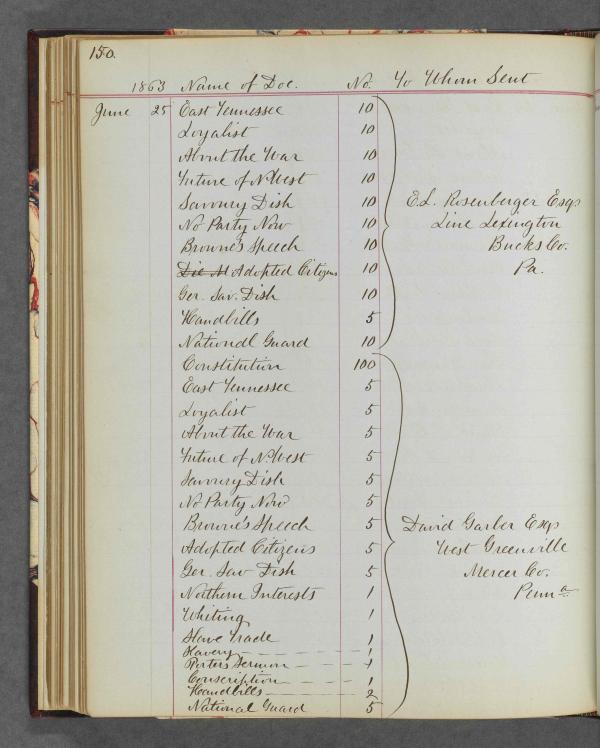 150.
1863 Name of Doc. No. To Whom Sent
June 25 East Tennessee 10
Loyalist 10
About the War 10
Future of N. West 10
Savoury Dish 10
E.L. Rosenberger Esqr
No Party Now 10
Line Lexington
Browne's Speech 10
Bucks Co.
Die Al Adopted Citizens 10
Pa.
Ger. Sav. Dish 10
Handbills 5
National Guard 10
Constitution 100
East Tennessee 5
Loyalist 5
About the War 5
Future of N. West 5
Savoury Dish 5
No Party Now 5
Browne's Speech 5
David Garber Esqr
Adopted Citizens 5
West Greenville
Ger. Sav Dish 5
Mercer Co.
Northern Interests 1
Penna
Whiting 1
Slave Trade 1
Slavery 1
Porter's Sermon 1
Conscription 1
Handbills 2
National Guard 5